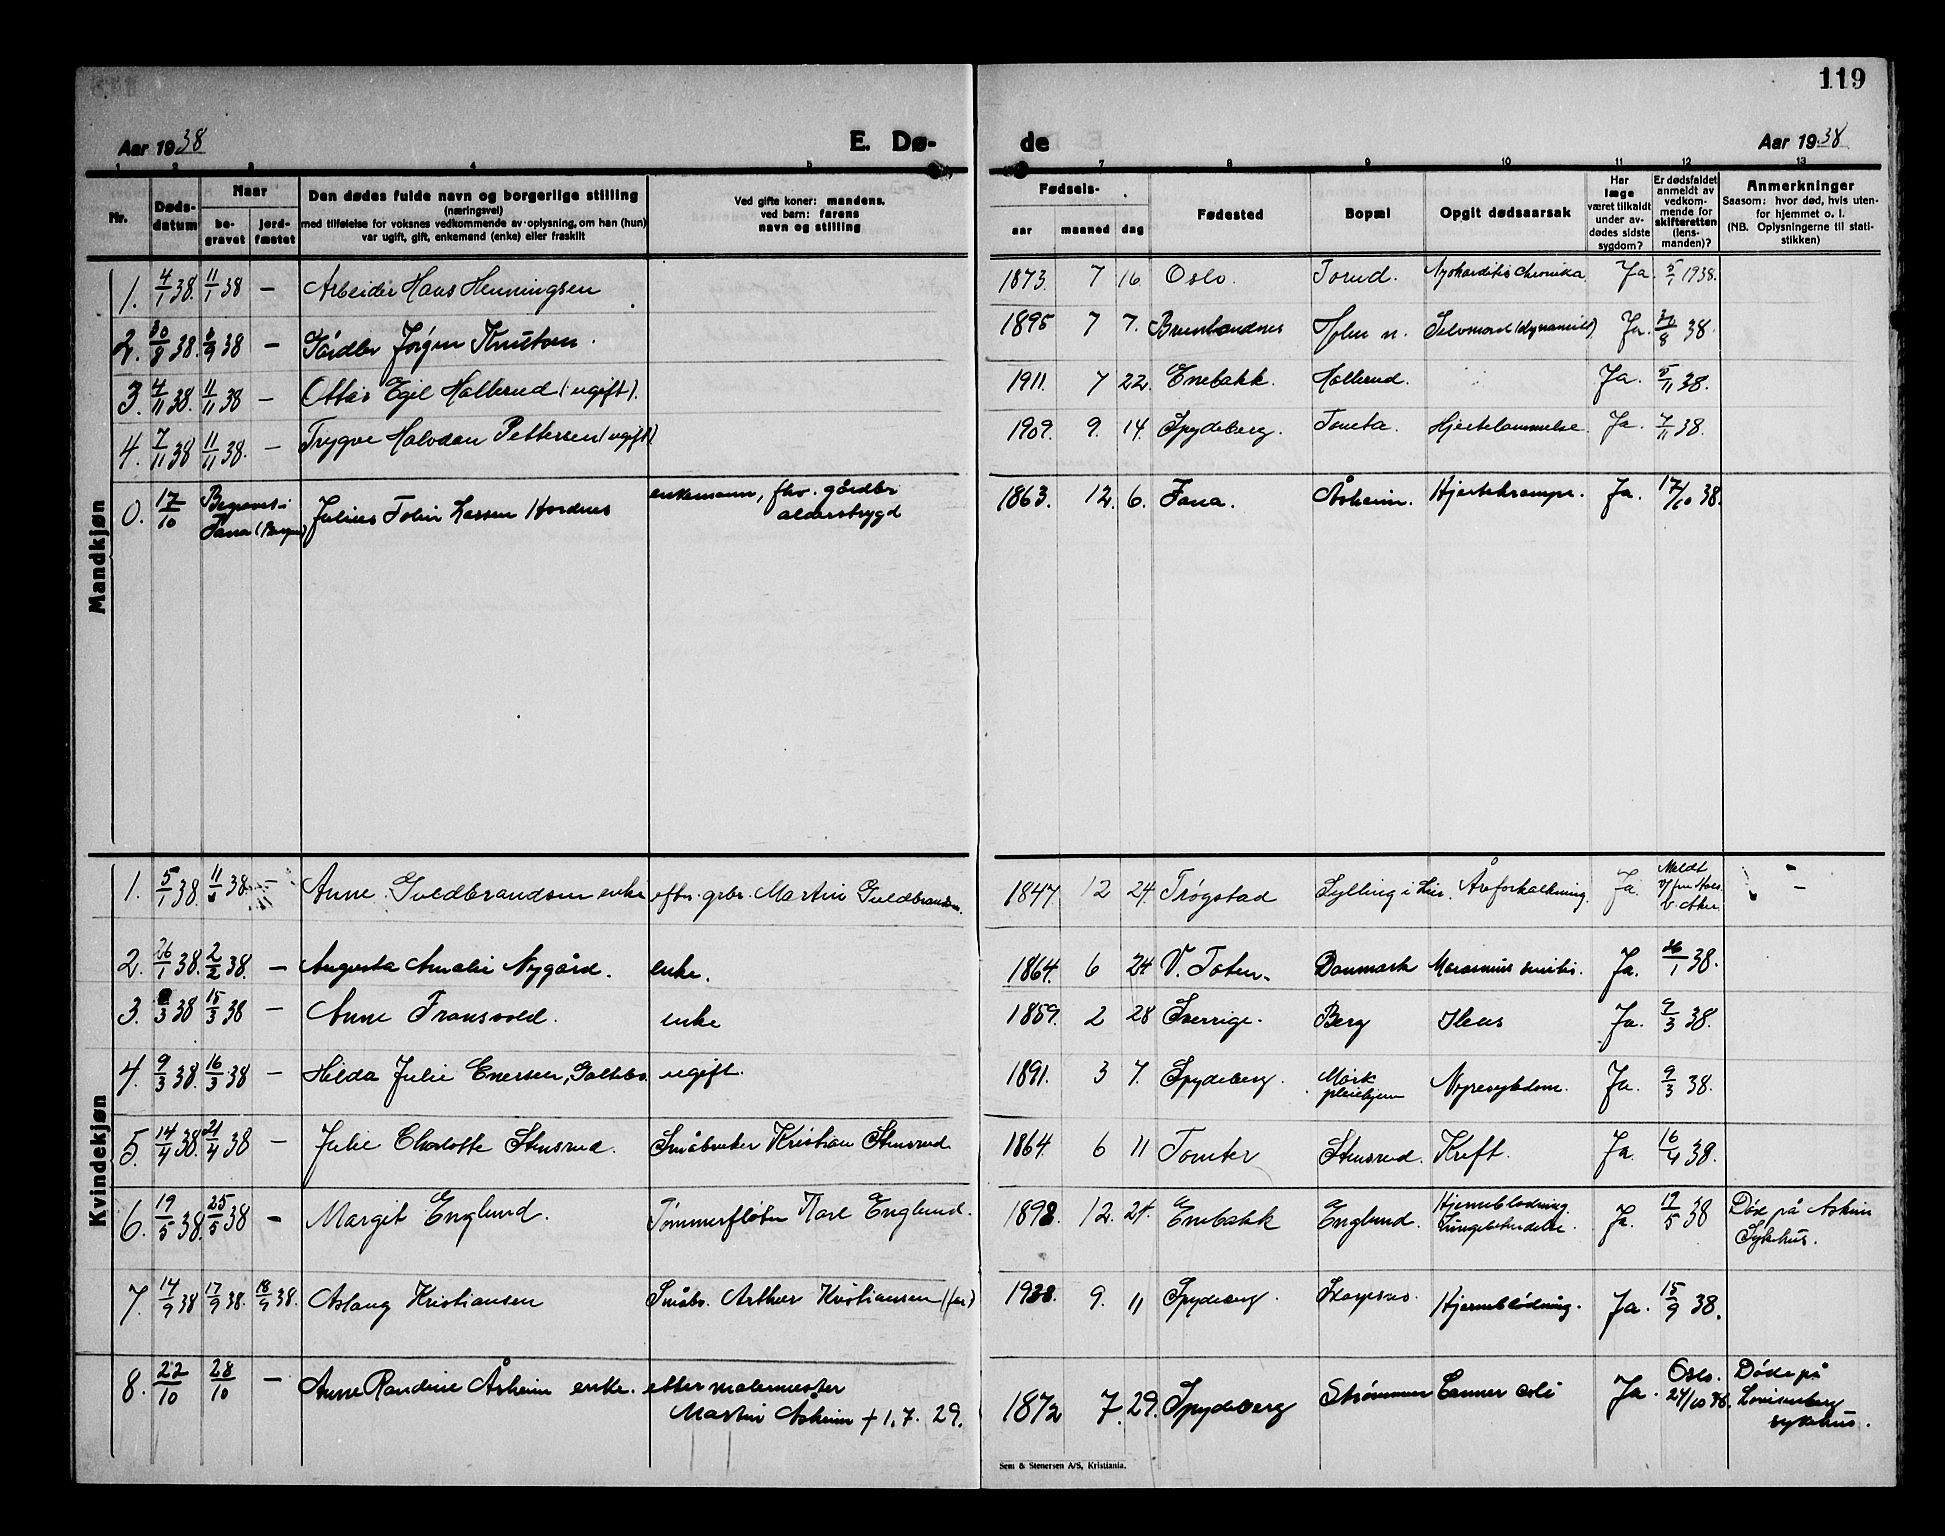 119
Aar 1938 E. Dø- de Aar 1938
1 2 3 4 5 7 8 9 10 11 12 13
Nr. Døds-datum Naar be-gravet jord-fæstet Den dødes fulde navn og borgerlige stilling (næringsvei) med tilføielse for voksnes vedkommende av oplysning, om han (hun) var ugift, gift, enkemand (enke) eller fraskilt Ved gifte koner: mandens, ved barn: farens navn og stilling Fødsels- aar maaned dag Fødested Bopæl Opgit dødsaarsak Har læge været tilkaldt under av-dødes sidste sygdom? Er dødsfaldet anmeldt av vedkom-mende for skifteretten (lens-manden)? Anmerkninger Saasom: hvor død, hvis uten-for hjemmet o. l. (NB. Oplysningerne til stati-stikken)
Mandkjøn
1. 4/1 38. 11/1 38 — Arbeider Hans Henningsen 1873. 7 16. Oslo. Torud. Myokarditis chronika Ja. 5/1 1938.
2. 30/8 38. 6/9 38 — Gårdbr Jørgen Knutsen. 1895 7 7. Holen n. Selvmord (dynamitt) Ja. 30/8 38.
3. 4/11 38. 11/11 38 — Ottar Egil Hallerud (ugift). 1911. 7 22. Enebakk. Hallerud. Ja. 5/11 38.
4. 7/11 38 11/11 38. — Trygve Halvdan Pettersen (ugift) 1909. 9. 14. Spydeberg. Toneta. Hjertelammelse Ja. 7/11 38.
0. 17/10 Begravet i Fana (Bergen) Julius Tobin Lassen Hordnes enkemann, fhv. gårdbr alderstrygd 1863. 12. 6. Fana. Åsheim. Hjertekrampe. Ja. 17/10 38.
Kvindekjøn
1. 5/1 38. 11/1 38. — Anne Guldbrandsen enke efter grbr. Martin Guldbrandsen. 1847. 12 24. Trøgstad Sylling i Lier. Åreforkalkning. Ja. Meldt v/ V. Aker —
2. 26/1 38. 2/2 38. — Augusta Amalie Nygård. enke. 1864. 6 24. V. Toten. Danmark Marasmus senilis. Ja. 26/1 38.
3. 3 38 15/3 38 — Anne Fransvold. enke 1859. 2 28 Sverrige. Berg Ileus Ja. 9/3 38.
4. 9/3 38. 16/3 38 — Hilda Julie Enersen, ugift. 1891. 3 7. Spydeberg. Mörk pleiehjem Nyresykdom. Ja. 9/3 38.
5. 14/4 38. 21/4 38 — Julie Charlotte Stensrud. Småbruker Kristian Stensrud. 1864. 6 11 Tomter Stensrud. Kreft. Ja. 16/4 38.
6. 19/5 38. 25/5 38 — Margit Englund. Tømmerfløter Karl Englund. 1898. 12. 24. Enebakk Englund. Hjerneblødning. Lungebetendelse. Ja. 19/5 38 Døde på Askim Sykehus.
7. 14/9 38 17/9 38. 18/9 38. Aslaug Kristiansen Småbr. Arthur Kristiansen (far) 1938. 9. 11 Spydeberg. Hjerneblödning. Ja. 15/9 38.
8. 22/10 28/10 — Anne Randine Åsheim enke. etter malermester Martin Asheim + 1.7. 29. 1872 7. 29. Spydeberg Strømmen Cancer coli Ja. Oslo. 24/10 38. Døde på Lovisenberg sykehus.
Sem & Stenersen A/S, Kristiania.